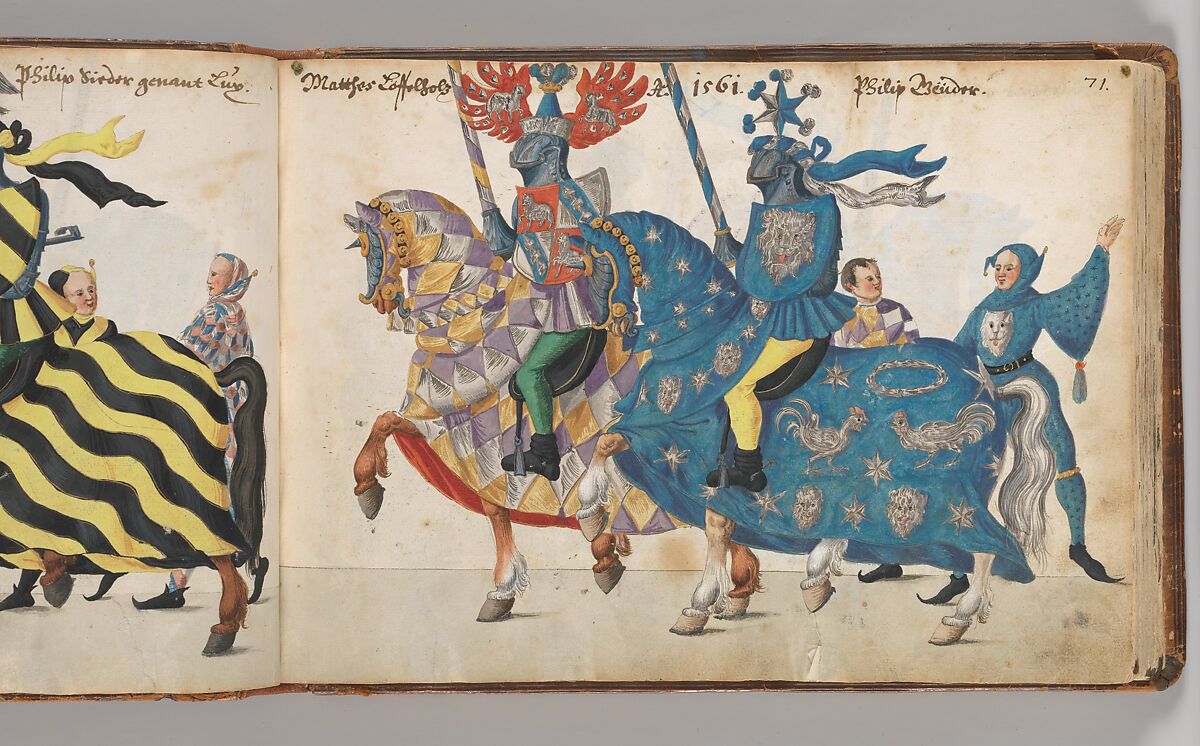 Philip Sieder genant Lux.
Matthes Löffelholz A͠o. 1561. Philip Bender. 71.